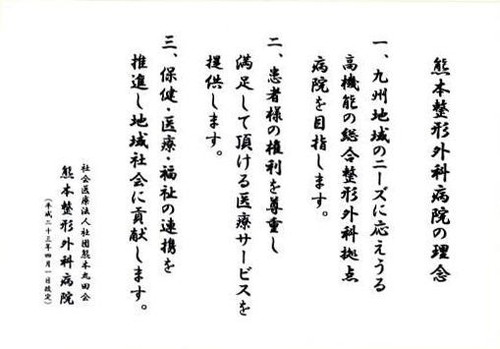 熊本整形外科病院の理念
一、九州地域のニーズに応えうる
高機能の総合整形外科拠点
病院を目指します。
二、患者様の権利を尊重し
満足して頂ける医療サービスを
提供します。
三、保健・医療・福祉の連携を
推進し地域社会に貢献します。
社会医療法人社団熊本丸田会
熊本整形外科病院
(平成二十三年四月一日改定)